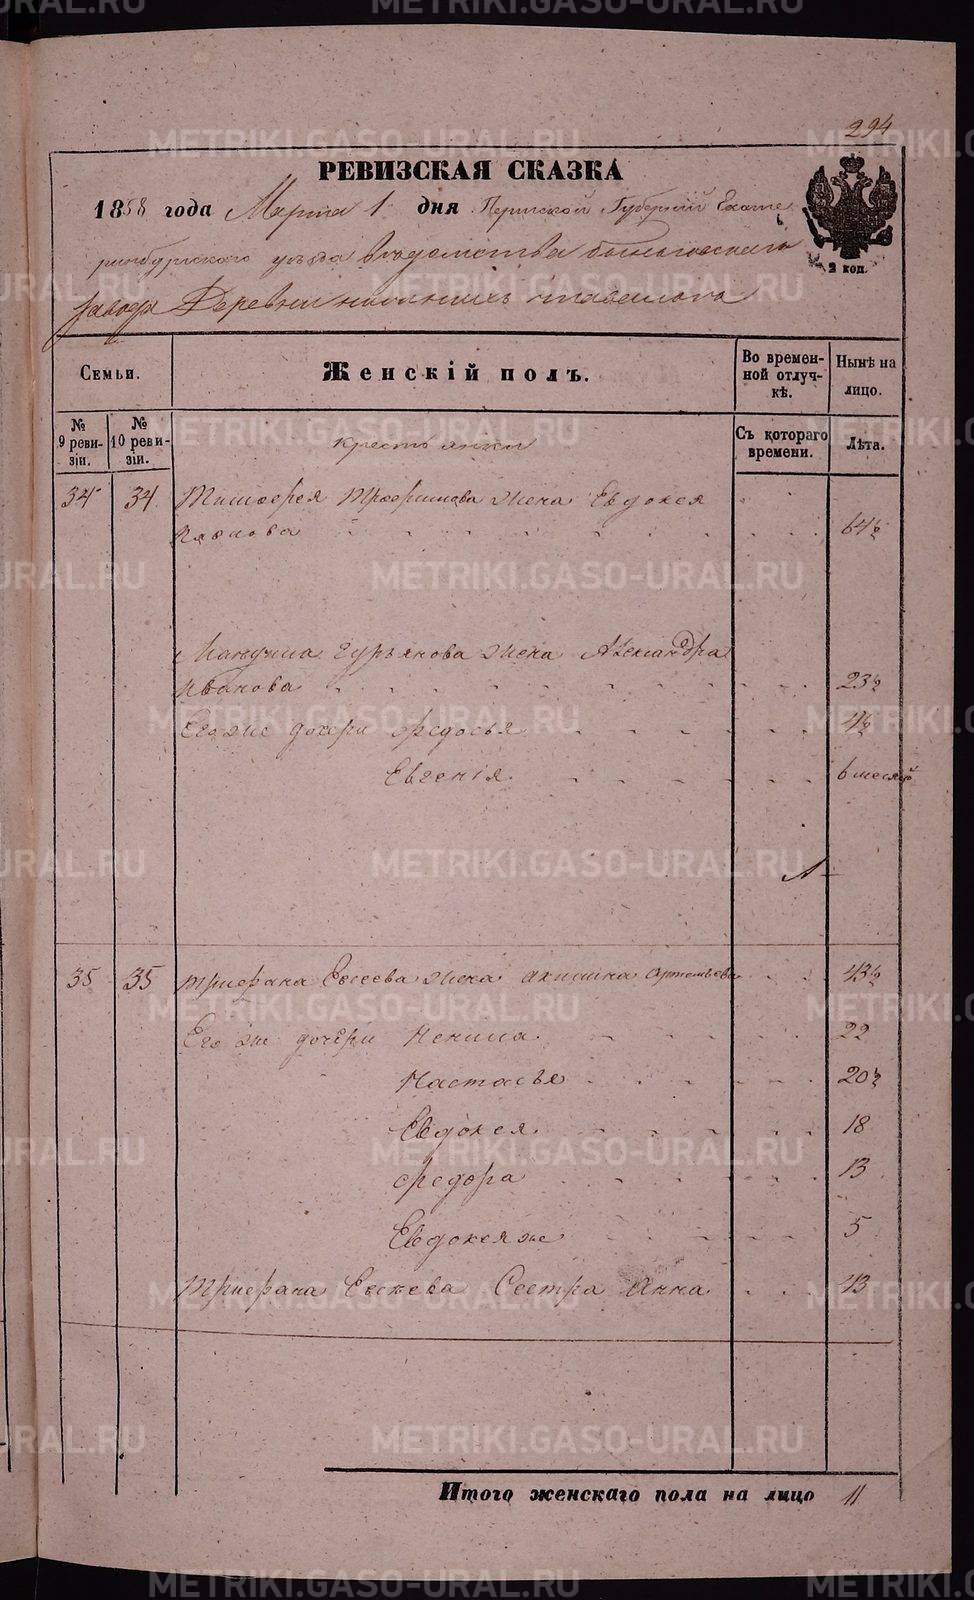 294
РЕВИЗСКАЯ СКАЗКА
1858 года Марта 1 дня Пермской Губерніи Екате
ринбургскаго уѣзда Вѣдомства быньговскаго
завода Деревни нижнихъ тавологъ
2 коп.
Семьи.
Женскій полъ.
Во времен-
ной отлуч-
кѣ.
Нынѣ на
лицо.
№
9 реви-
зіи.
№
10 реви-
зіи.
крестьянки
Съ котораго
времени.
Лѣта.
34 34 Тимофея Трофимова жена Евдокея
Павлова 64½
Мануила Гурьянова жена Александра
Иванова 23½
Его же дочери Федосья 4½
Евгенія 6 месяцъ
35 35 Трифана Евсеева жена Акилина Артемьева 43½
Его же дочери Ненила 22
Настасья 20½
Евдокея 18
Федора 13
Евдокея же 5
Трифана Евсеева Сестра Анна 43
Итого женскаго пола на лицо 11
METRIKI.GASO-URAL.RU